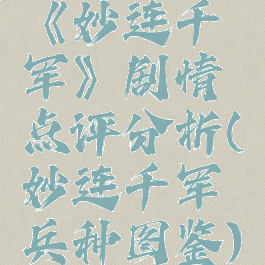 《妙连千
军》剧情
点评分析(
妙连千军
兵种图鉴)